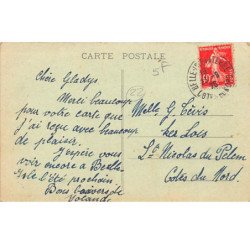 CARTE POSTALE
Chère Gladys
Merci beaucoup
pour votre carte que
j'ai reçue avec beaucoup
de plaisir.
J'espère vous
voir encore à Belle
Isle l'été prochain
Bons baisers de
Yolande
Melle G.
Ker Loïs
St Nicolas du Pelem
Côtes du Nord